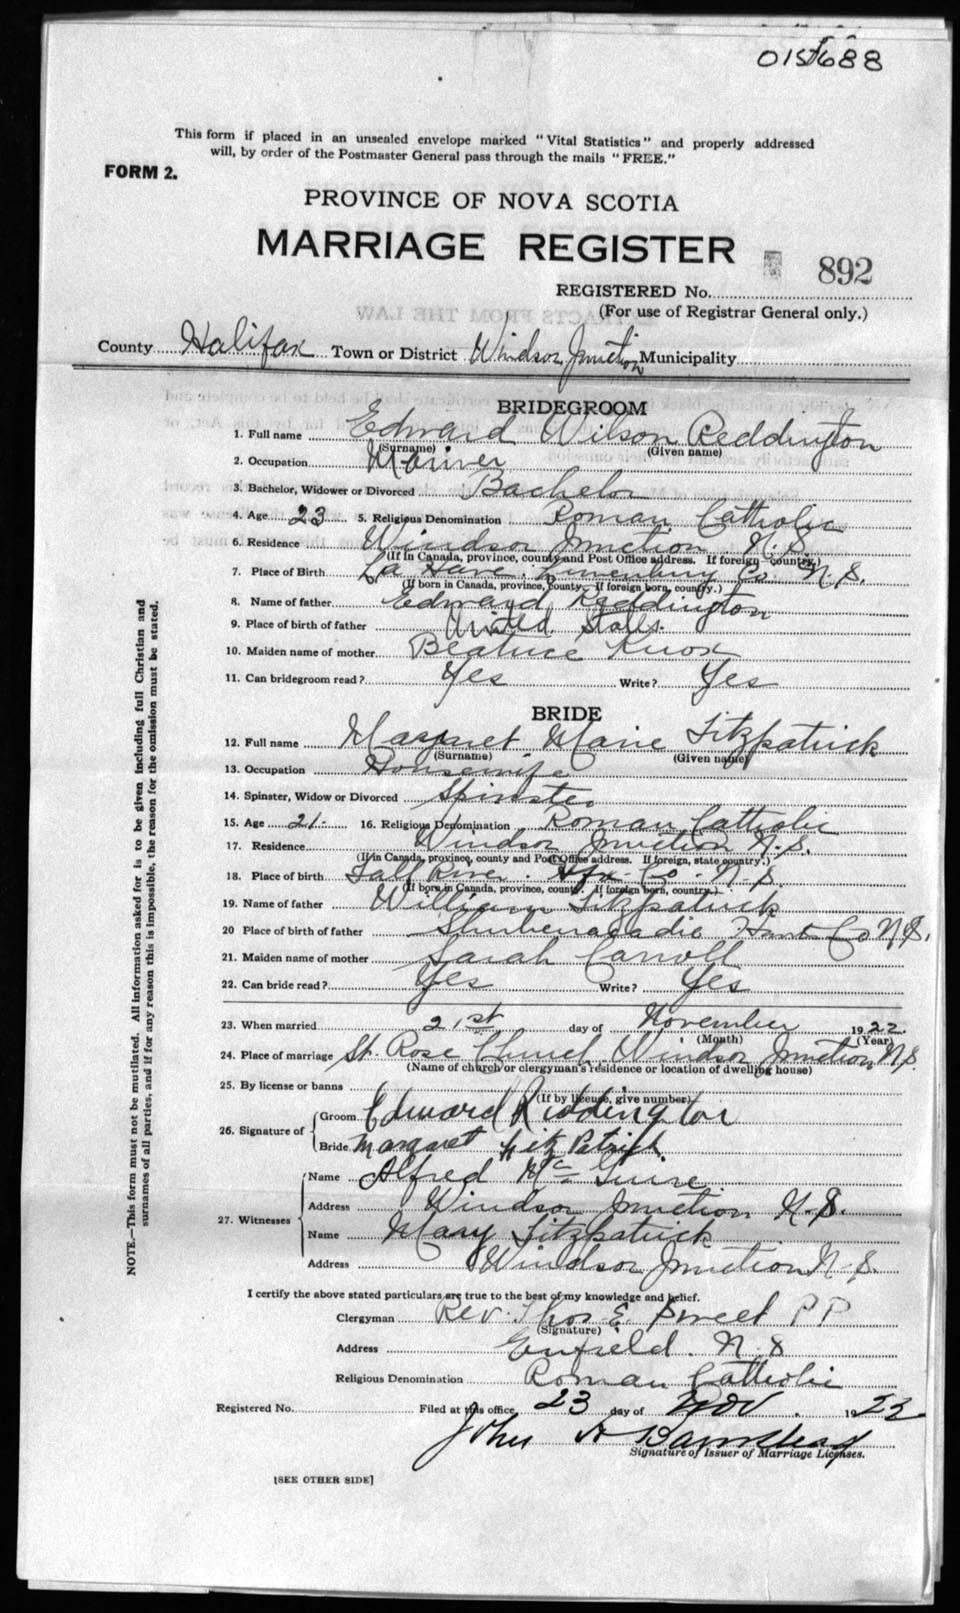 015688
This form if placed in an unsealed envelope marked "Vital Statistics" and properly addressed
will, by order of the Postmaster General pass through the mails "FREE."
FORM 2.
PROVINCE OF NOVA SCOTIA
MARRIAGE REGISTER
892
REGISTERED No.
(For use of Registrar General only.)
County Halifax Town or District Windsor Junction Municipality
BRIDEGROOM
1. Full name Edward Wilson Reddington
(Surname) (Given name)
2. Occupation Mariner
3. Bachelor, Widower or Divorced Bachelor
4. Age 23 5. Religious Denomination Roman Catholic
6. Residence Windsor Junction N.S.
(If in Canada, province, county and Post Office address. If foreign country.)
7. Place of Birth La Have. Lunenburg Co. N.S.
(If born in Canada, province, county. If foreign born, country.)
8. Name of father Edward Reddington
9. Place of birth of father United States.
10. Maiden name of mother Beatrice Knox
11. Can bridegroom read? Yes Write? Yes
BRIDE
12. Full name Margaret Marie Fitzpatrick
(Surname) (Given name)
13. Occupation Housewife
14. Spinster, Widow or Divorced Spinster
15. Age 21- 16. Religious Denomination Roman Catholic
17. Residence Windsor Junction N.S.
(If in Canada, province, county and Post Office address. If foreign, state country.)
18. Place of birth Fall River. Hfx Co. N.S.
(If born in Canada, province, county. If foreign born, country.)
19. Name of father William Fitzpatrick
20 Place of birth of father Shubenacadie Hants Co N.S.
21. Maiden name of mother Sarah Carroll
22. Can bride read? Yes Write? Yes
23. When married 21st day of November 1922.
(Month) (Year)
24. Place of marriage St. Rose Church, Windsor Junction N.S.
(Name of church or clergyman's residence or location of dwelling house)
25. By license or banns
(If by license, give number)
26. Signature of Groom Edward Riddington
Bride Margaret Fitz Patrick.
27. Witnesses Name Alfred McGuire
Address Windsor Junction N.S.
Name Mary Fitzpatrick
Address Windsor Junction N.S.
I certify the above stated particulars are true to the best of my knowledge and belief.
Clergyman Rev. Thos E. Sweet P P
(Signature)
Address Enfield. N.S
Religious Denomination Roman Catholic
Registered No. Filed at this office 23 day of Nov. 1922
John A
Signature of Issuer of Marriage Licenses.
[SEE OTHER SIDE]
NOTE.—This form must not be mutilated. All information asked for is to be given including full Christian and
surnames of all parties, and if for any reason this is impossible, the reason for the omission must be stated.